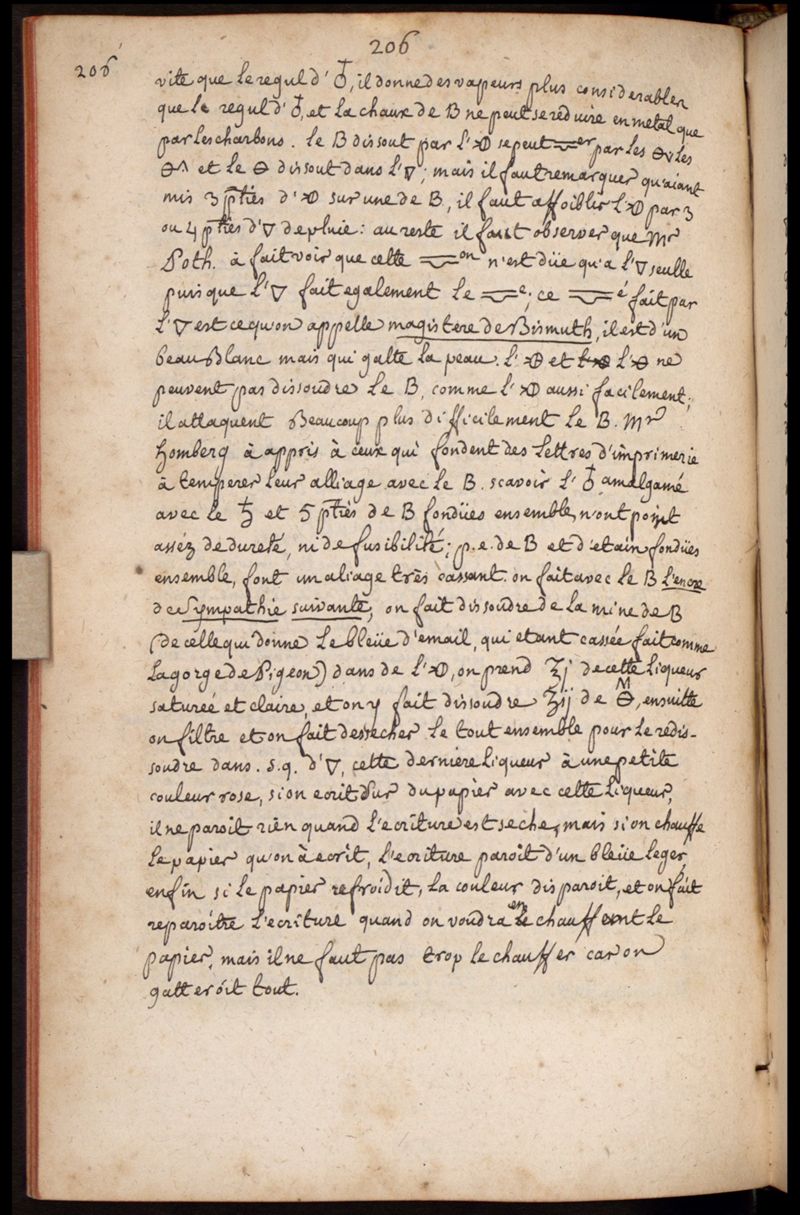 206
206
vite que le regul d'♁, il donne des vapeurs plus considerables
que le regul d'♁, et la chaux de B ne peut se reduire en metal que
par les charbons. le B dissout par l' se peut er par les les
et le dissout dans l'▽; mais il faut remarquer qu'aiant
mis 3 pties d' sur une de B, il faut affoiblir l' par 3
ou 4 pties d'▽ de pluie: au reste il faut observer que Mr
Poth. à fait voir que cette on n'est düe qu'a l'▽ seulle
puisque l'▽ fait egalement le e; ce é fait par
l'▽ est cequ'on appelle magistere de Bismuth, il est d'un
beau Blanc mais qui gatte la peau. l' et l' ne
peuvent pas dissoudre le B, comme l' aussi facilement;
il attaquent Beaucoup plus difficilement le B. Mr
Homberg à appris à ceux qui fondent des lettres d'imprimerie
à temperer leur alliage avec le B. scavoir l'♁ amalgamé
avec le ♄ et 5 pties de B fondües ensemble, n'ont point
asséz de dureté, ni de fusibilité; p.e. de B et d'etain fondües
ensemble, font un aliage très cassant. on fait avec le B l'encre
de Sympathie suivante, on fait dissoudre de la mine de B
(de celle qui donne le bleüe d'email, qui etant cassée fait comme
la gorge de Pigeon) dans de l', on prend ʒj de cette liqueur
saturée et claire, et on y fait dissoudre ʒij de M, ensuitte
on filtre et on fait dessecher le tout ensemble pour le redis-
soudre dans. s.q. d'▽, cette derniere liqueur à une petite
couleur rose, si on ecrit sur du papier avec cette liqueur,
il ne paroit rien quand l'ecriture est seche, mais si on chauffe
le papier qu'on à ecrit, l'ecriture paroit d'un bleüe leger,
enfin si le papier refroidit, la couleur disparoit, et on fait
reparoitre l'ecriture quand on voudra en chauffant le
papier, mais il ne faut pas trop le chauffer car on
gatteroit tout.